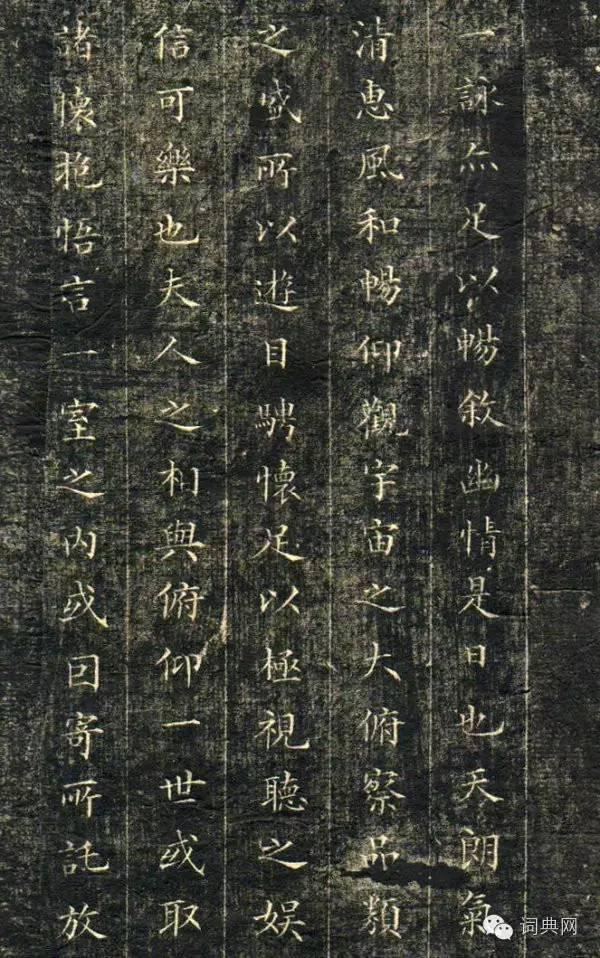 一詠亦足以暢敘幽情是日也天朗氣
清惠風和暢仰觀宇宙之大俯察品類
之盛所以遊目騁懷足以極視聽之娛
信可樂也夫人之相與俯仰一世或取
諸懷抱悟言一室之內或因寄所託放
词典网